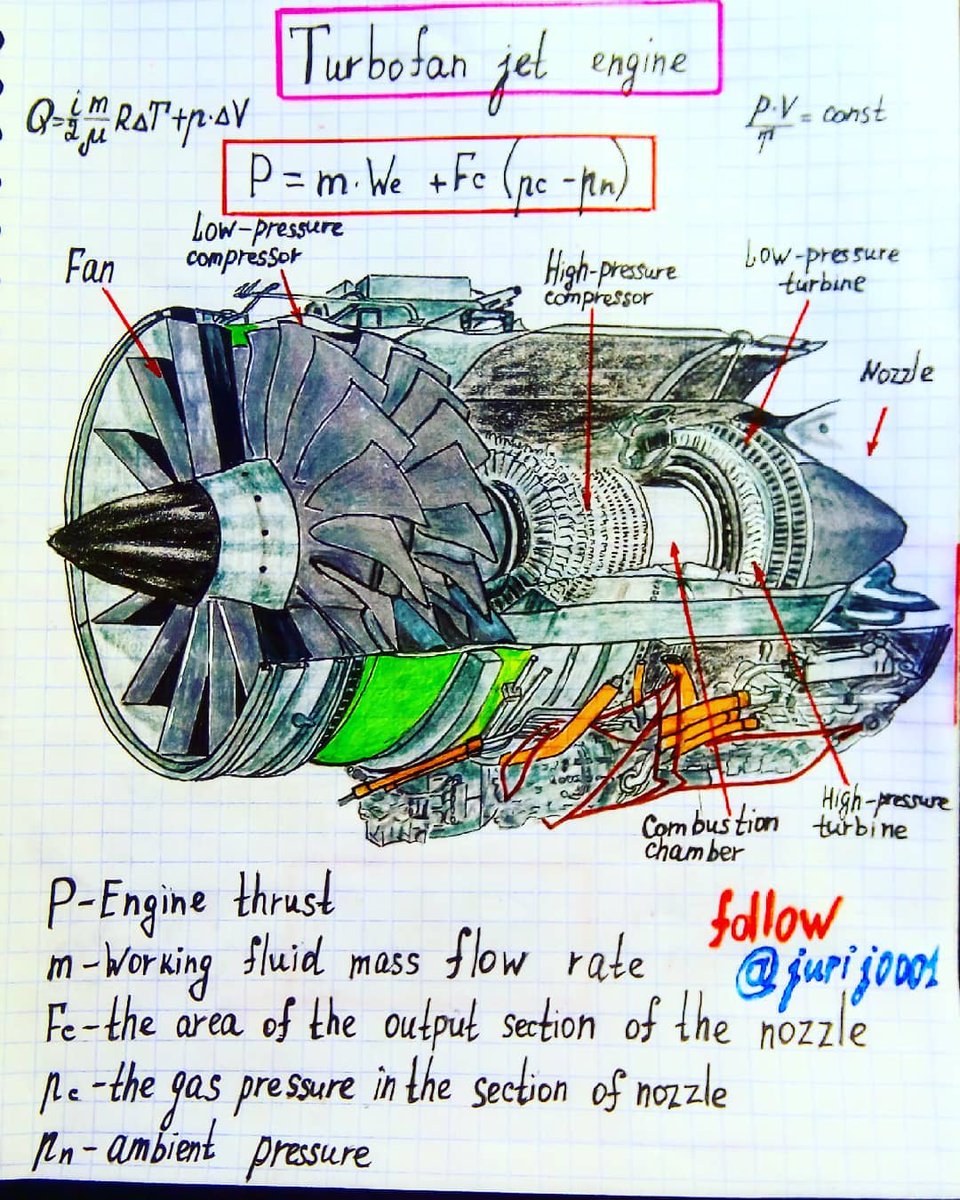 Turbofan jet engine
Q=i/2 m/μ RΔT+p·ΔV
P·V/T = const
P = m·We + Fc (pc - pn)
Fan
Low-pressure
compressor
High-pressure
compressor
Low-pressure
turbine
Nozzle
Combustion
chamber
High-pressure
turbine
P-Engine thrust
m-Working fluid mass flow rate
Fc-the area of the output section of the nozzle
pc-the gas pressure in the section of nozzle
pn-ambient pressure
follow
@jurij0001